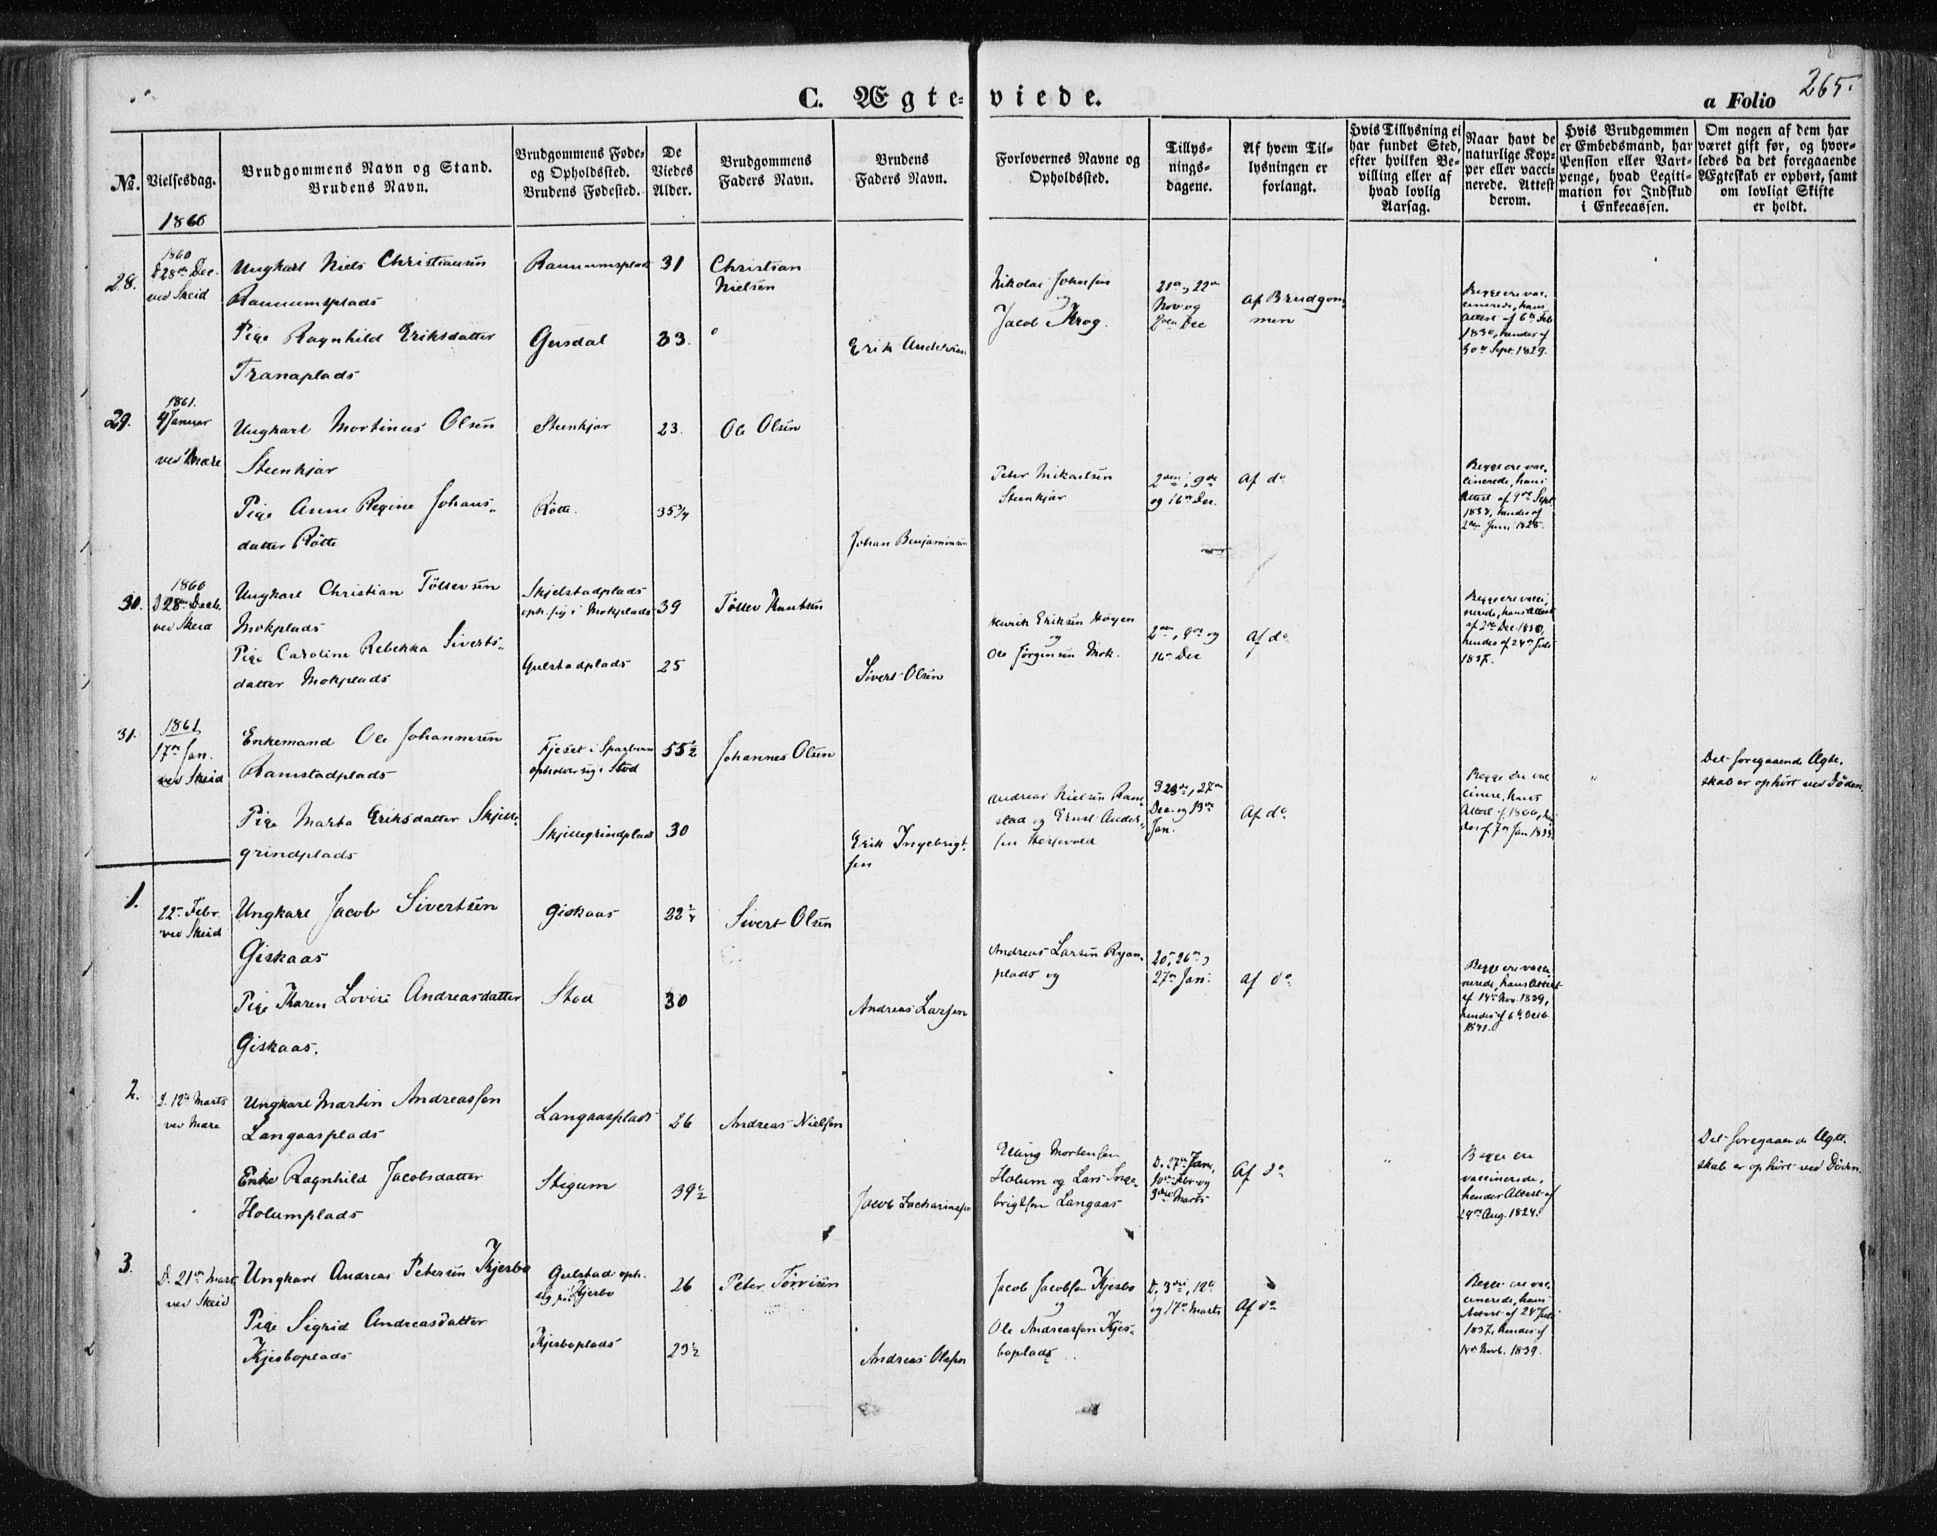 265.
C. Ægte-viede.
a Folio
No.
Vielsesdag.
Brudgommens Navn og Stand.
Brudens Navn.
Brudgommens Føde-
og Opholdssted.
Brudens Fødested.
De
Viedes
Alder.
Brudgommens
Faders Navn.
Brudens
Faders Navn.
Forlovernes Navne og
Opholdssted.
Tillys-
nings-
dagene.
Af hvem Til-
lysningen er
forlangt.
Hvis Tillysning ei
har fundet Sted,
efter hvilken Be-
villing eller af
hvad lovlig
Aarsag.
Naar havt de
naturlige Kop-
per eller vacci-
nerede. Attest
derom.
Hvis Brudgommen
er Embedsmand, har
Pension eller Vart-
penge, hvad Legiti-
mation for Indskud
i Enkecassen.
Om nogen af dem har
været gift før, og hvor-
ledes da det foregaaende
Ægteskab er ophørt, samt
om lovligt Skifte
er holdt.
1860
28.
1860
28de Dec.
ved Skeid
Ungkarl Niels Christiansen
Raumumsplads
Pige Ragnhild Eriksdatter
Tranaplads
Raumumsplads
Gersdal
31
33.
Christian
Nielsen
Erik Andersen
Nikolai Johnsen
og
Jacob Krog.
21de, 22de
Nov og
2den Dec
Af Brudgom
men
Begge ere vac-
cinerede, hans
Attest af 6te Feb
1830, hendes af
30te Sept. 1829.
29.
1861.
4 Januar
ved Mære
Ungkarl Mortinus Olsen
Steenkjær
Pige Anne Regine Johans-
datter Røtte
Steenkjær
Røtte.
23.
35 3/4
Ole Olsen
Johan Benjaminsen
Peter Mikaelsen
Steenkjær
2den, 9de
og 16de Dec.
Af do
Begge ere vac-
cinerede, hans
Attest af 9de Sept
1838, hendes af
2den Juni 1828.
30.
1860
D 28de Decb.
ved Skeid
Ungkarl Christian Tøllevsen
Mokplads
Pige Caroline Rebekka Siverts-
datter Mokplads
Skjelstadplads
oph. sig i Mokplads
Gulstadplads
39
25
Tøllev Knutsen
Sivert Olsen
Henrik Eriksen Høyen
og
Ole Jørgensen Mok.
2den, 9de og
16de Dec
Af do
Begge ere vacci-
nerede, hans Attest
af 2de Dec. 1830,
hendes af 24de Juli
1837.
31.
1861
17de Jan.
ved Skeid
Enkemand Ole Johannesen
Ramstadplads
Pige Marta Eriksdatter Skjelle-
grindplads
Fjeset i Sparboen
opholder sig i Stod
Skjellegrindplads
55 1/2
30
Johannes Olsen
Erik Ingebrigt-
sen
Andreas Nielsen Ram-
stad og Ernst Ander-
sen
D 23de, 27de
Dec. og 13de
Jan.
Af do
Begge ere vac
cinere, hans
Attest af 1800, hen
des af 7de Jan 1833
"
Det foregaaende Ægte-
skab er ophørt ved Døden.
1.
22de Febr.
ved Skeid
Ungkarl Jacob Sivertsen
Giskaas
Pige Karen Lovise Andreasdatter
Giskaas.
Giskaas
Stod
22 1/4
30
Sivert Olsen
Andreas Larsen
Andreas Larsen Ryan-
plads og
20de, 26de og
27de Jan:
Af do
Begge ere vacci-
nerede, hans Attest
af 14de Nov. 1839,
hendes af 6te Octb.
1841.
2.
D. 12te Marts
ved Mære
Ungkarl Martin Andreassen
Langaasplads
Enke Ragnhild Jacobsdatter
Holumplads
Langaasplads
Stigum
26
39 1/2
Andreas Nielsen
Jacob Zachariassen
Elling Mortensen
Holum og Lars Inge-
brigtsen Langaas
D. 27de Jan,
10de Febr og
3die Marts
Af do
"
Begge ere
vaccinerede,
hendes Attest af
24de Aug. 1824.
Det foregaaende Ægte-
skab er ophørt ved Døden.
3.
D. 21de Marts
ved Skeid
Ungkarl Andreas Petersen Kjesbo
Pige Sigrid Andreasdatter
Kjesboplads
Gulstad oph.
sig paa Kjesbo
Kjesboplads
26
29 1/2
Peter Torrisen
Andreas Olsen
Jacob Jacobsen Kjesbo
og
Ole Andreassen Kjes-
boplads
D. 3die, 12te
og 17de Marts
Af do
Begge ere vac-
cinerede, hans
Attest af 24 Juli
1837, hendes af
14de Novb. 1839.